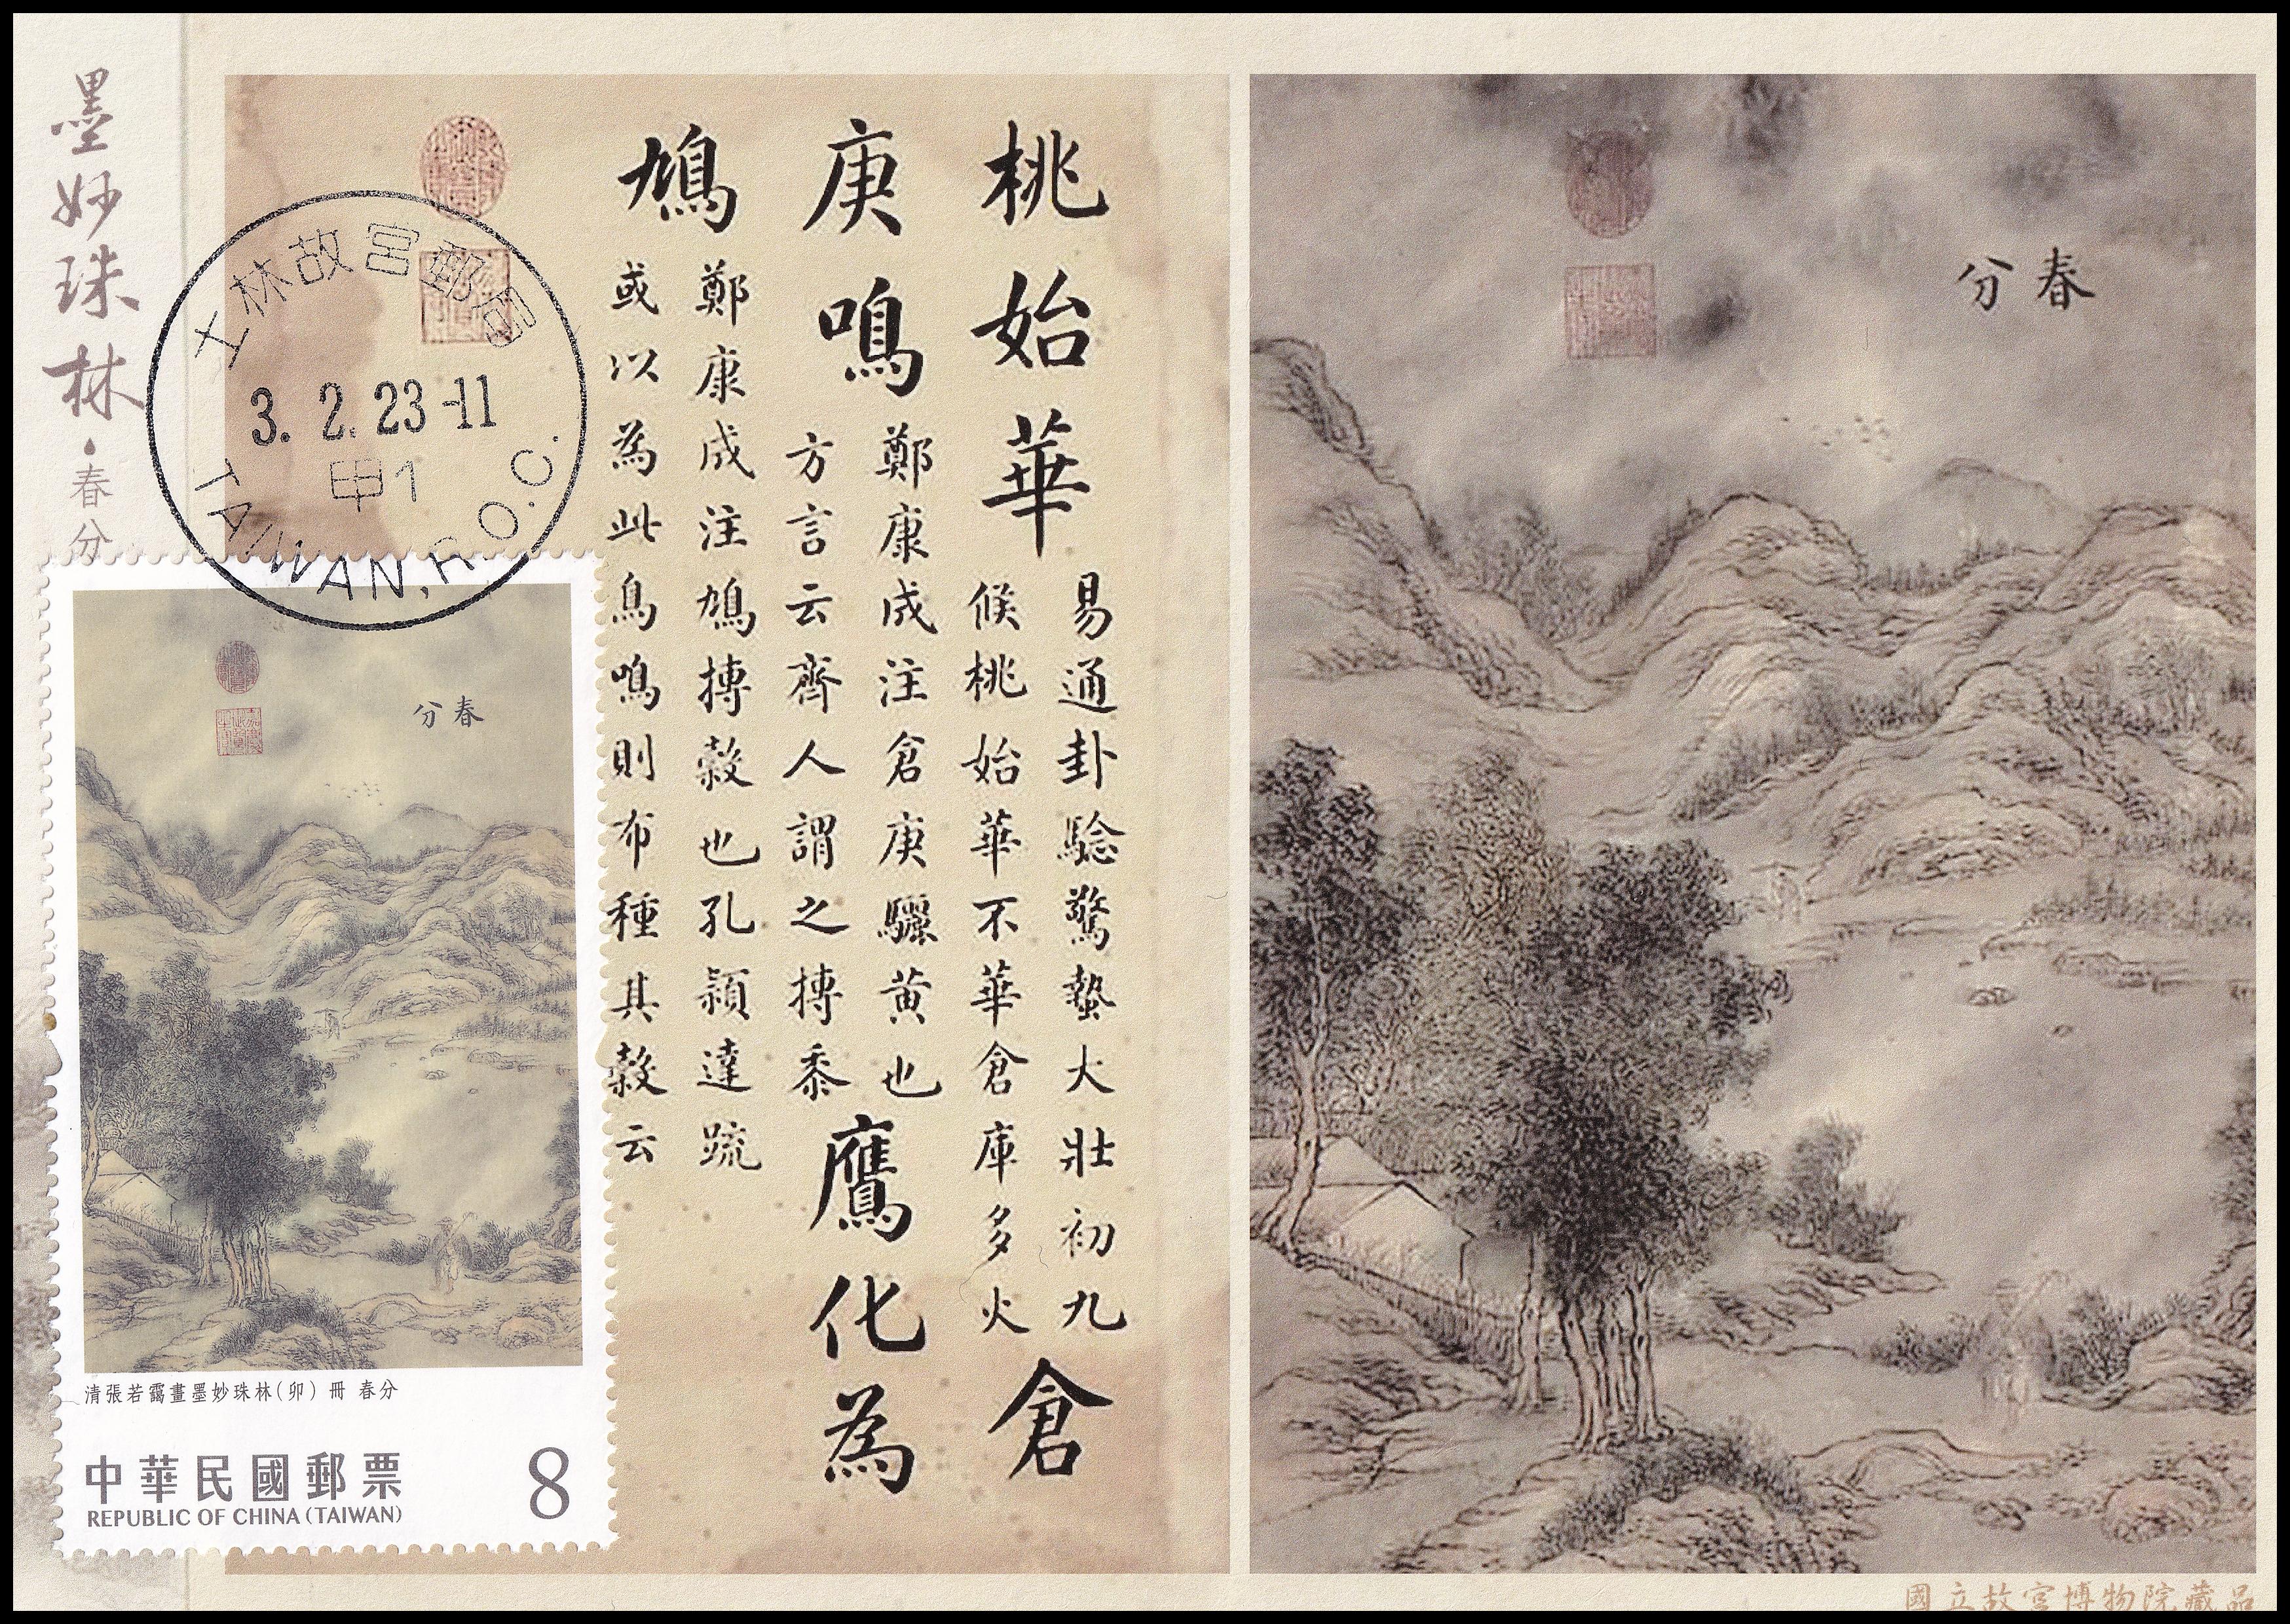 墨妙珠林·春分
桃始華
易通卦驗驚蟄大壯初九
候桃始華不華倉庫多火
倉
庚鳴
鄭康成注倉庚驪黃也
方言云齊人謂之搏黍
鷹化為
鳩
鄭康成注鳩搏穀也孔穎達疏
或以為此鳥鳴則布種其穀云
春分
士林故宮郵局
3. 2. 23-11
甲1
TAIWAN, R.O.C.
春分
清張若靄畫墨妙珠林(卯) 冊 春分
中華民國郵票
REPUBLIC OF CHINA (TAIWAN)
8
國立故宮博物院藏品